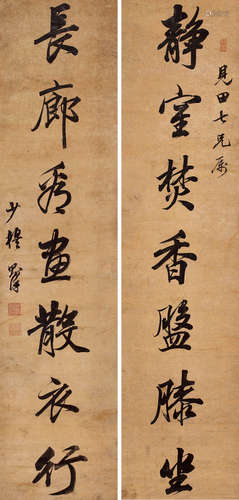 見田七兄屬
靜室焚香盤膝坐
長廊看畫散衣行
少穆則徐